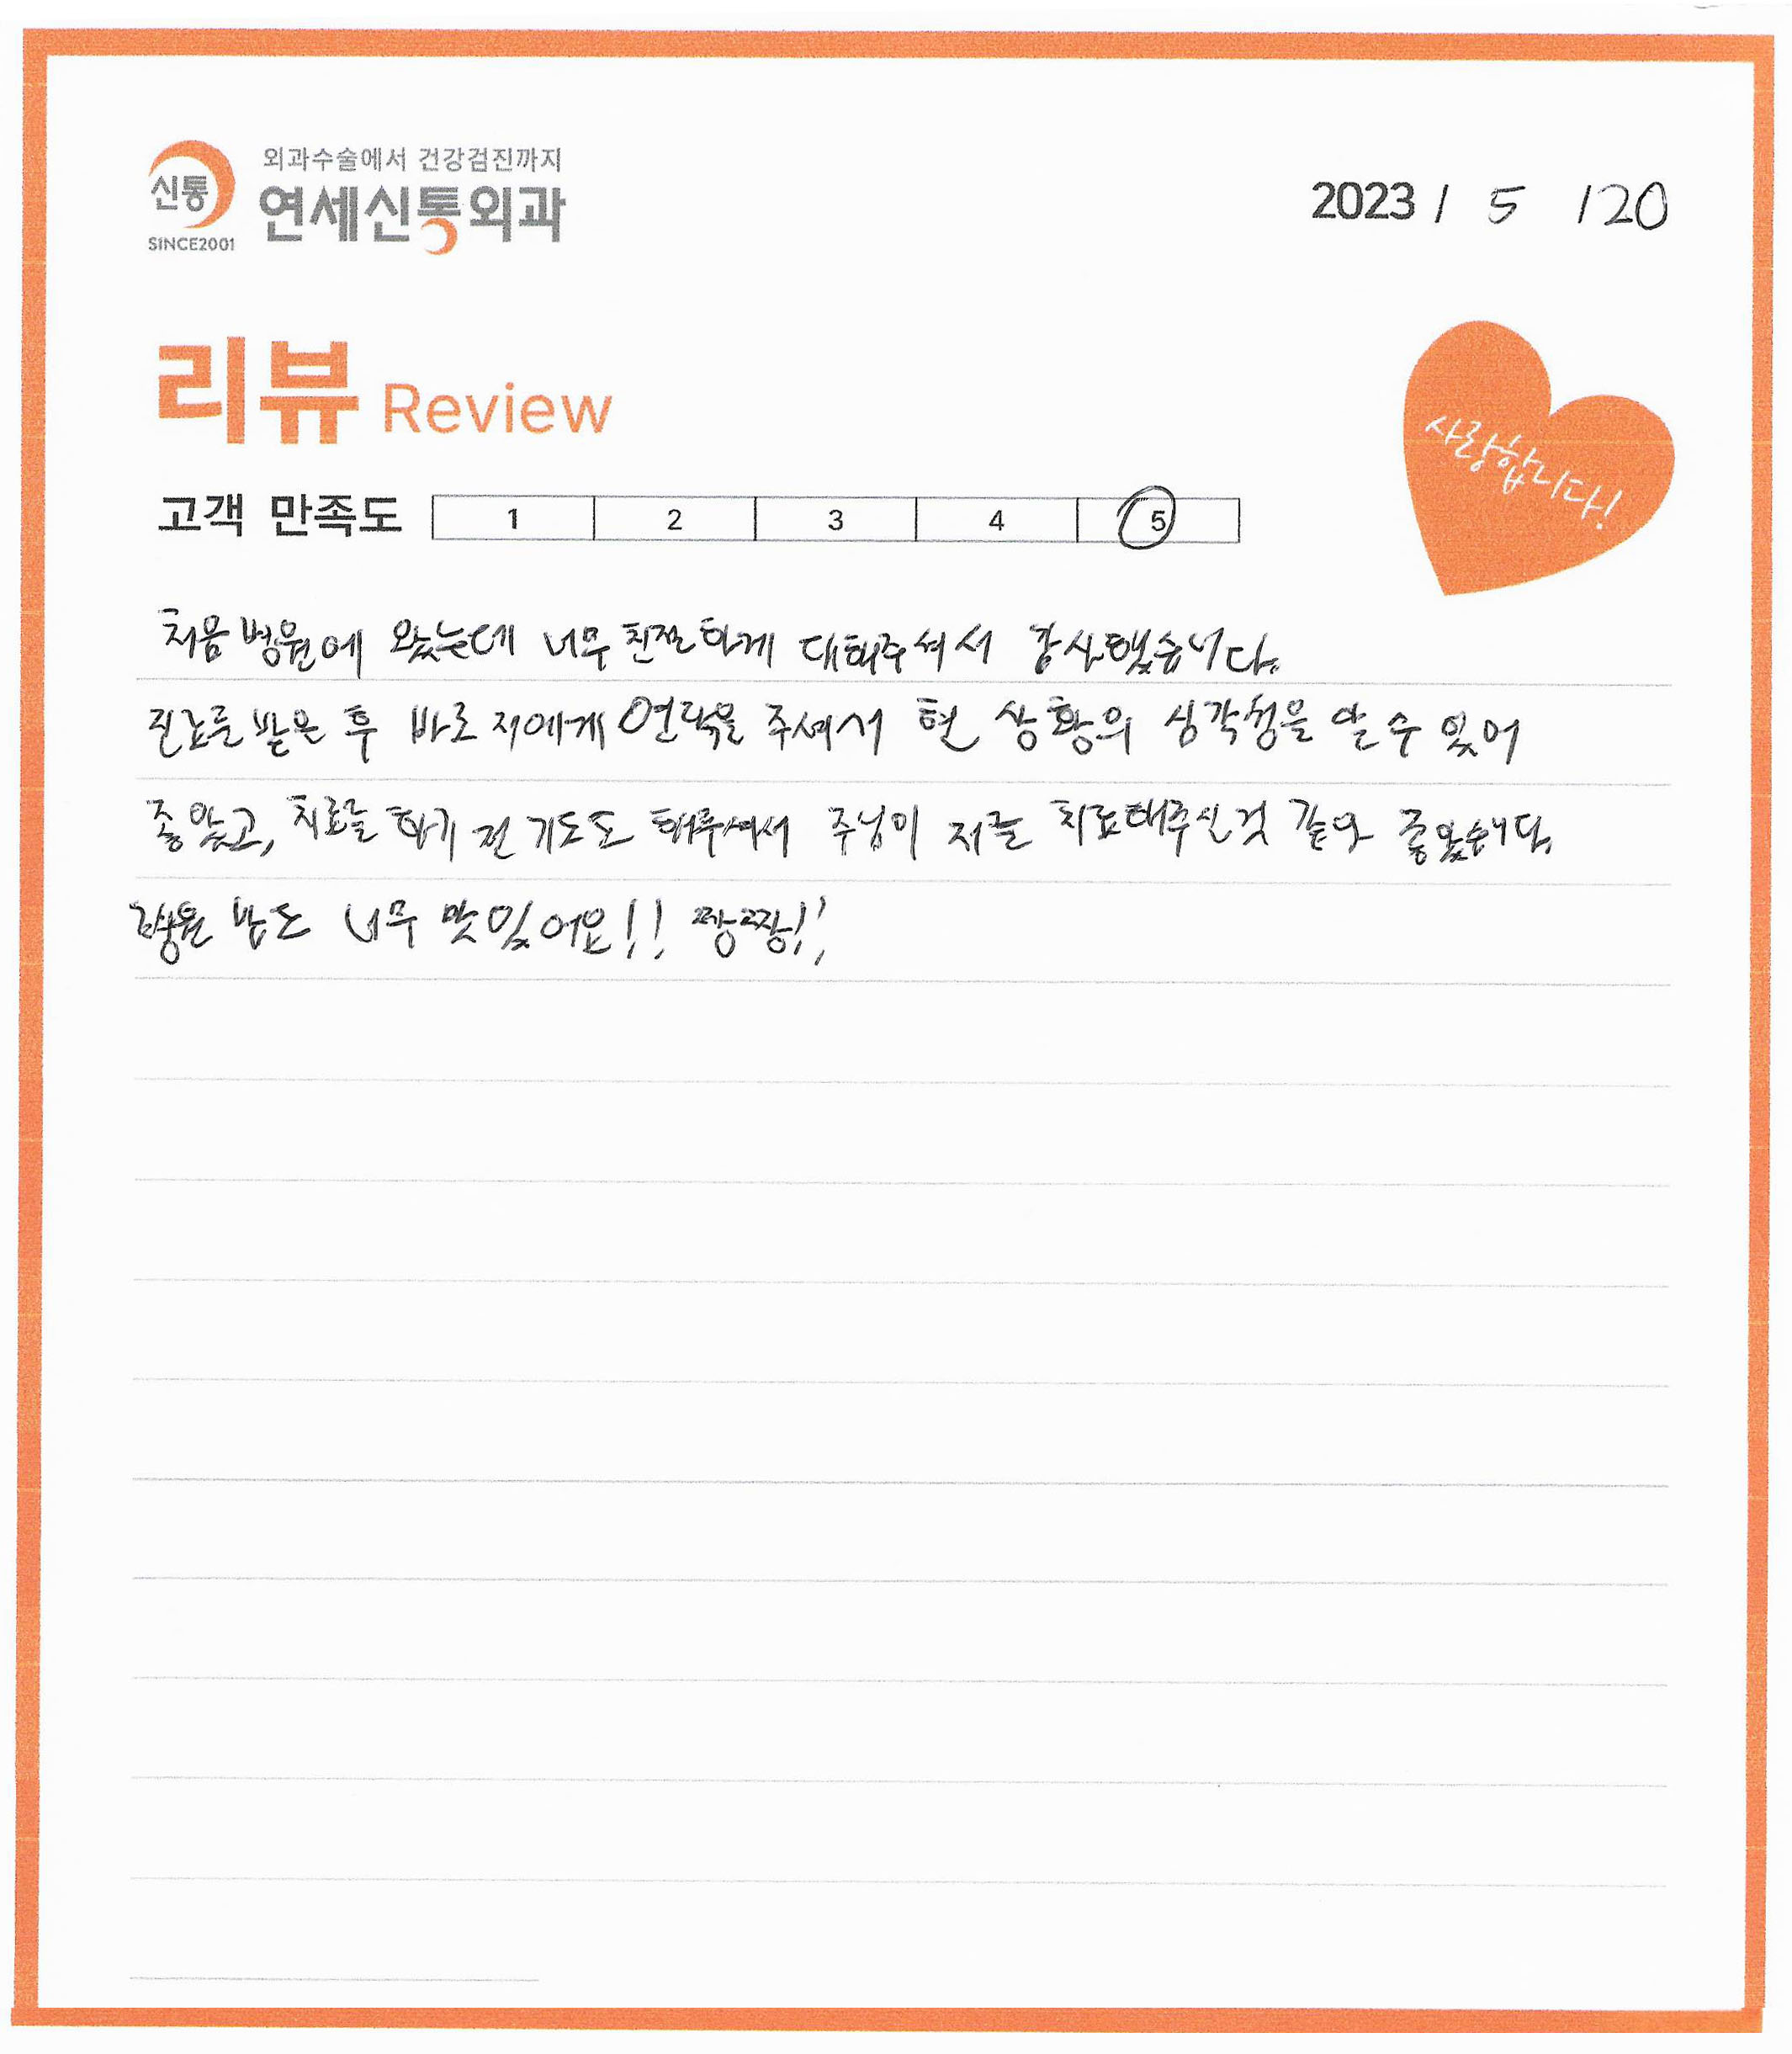 외과수술에서 건강검진까지
신통
연세신통외과
SINCE2001
2023 / 5 / 20
리뷰 Review
사랑합니다!
고객 만족도 1 2 3 4 5
처음 병원에 왔는데 너무 친절하게 대해주셔서 감사했습니다.
진료를 받은 후 바로 저에게 연락을 주셔서 현 상황의 심각성을 알 수 있어
좋았고, 치료를 하기 전 기도도 해주셔서 주님이 저를 치료해주신것 같아 좋았습니다.
병원 밥도 너무 맛있어요!! 짱짱!!